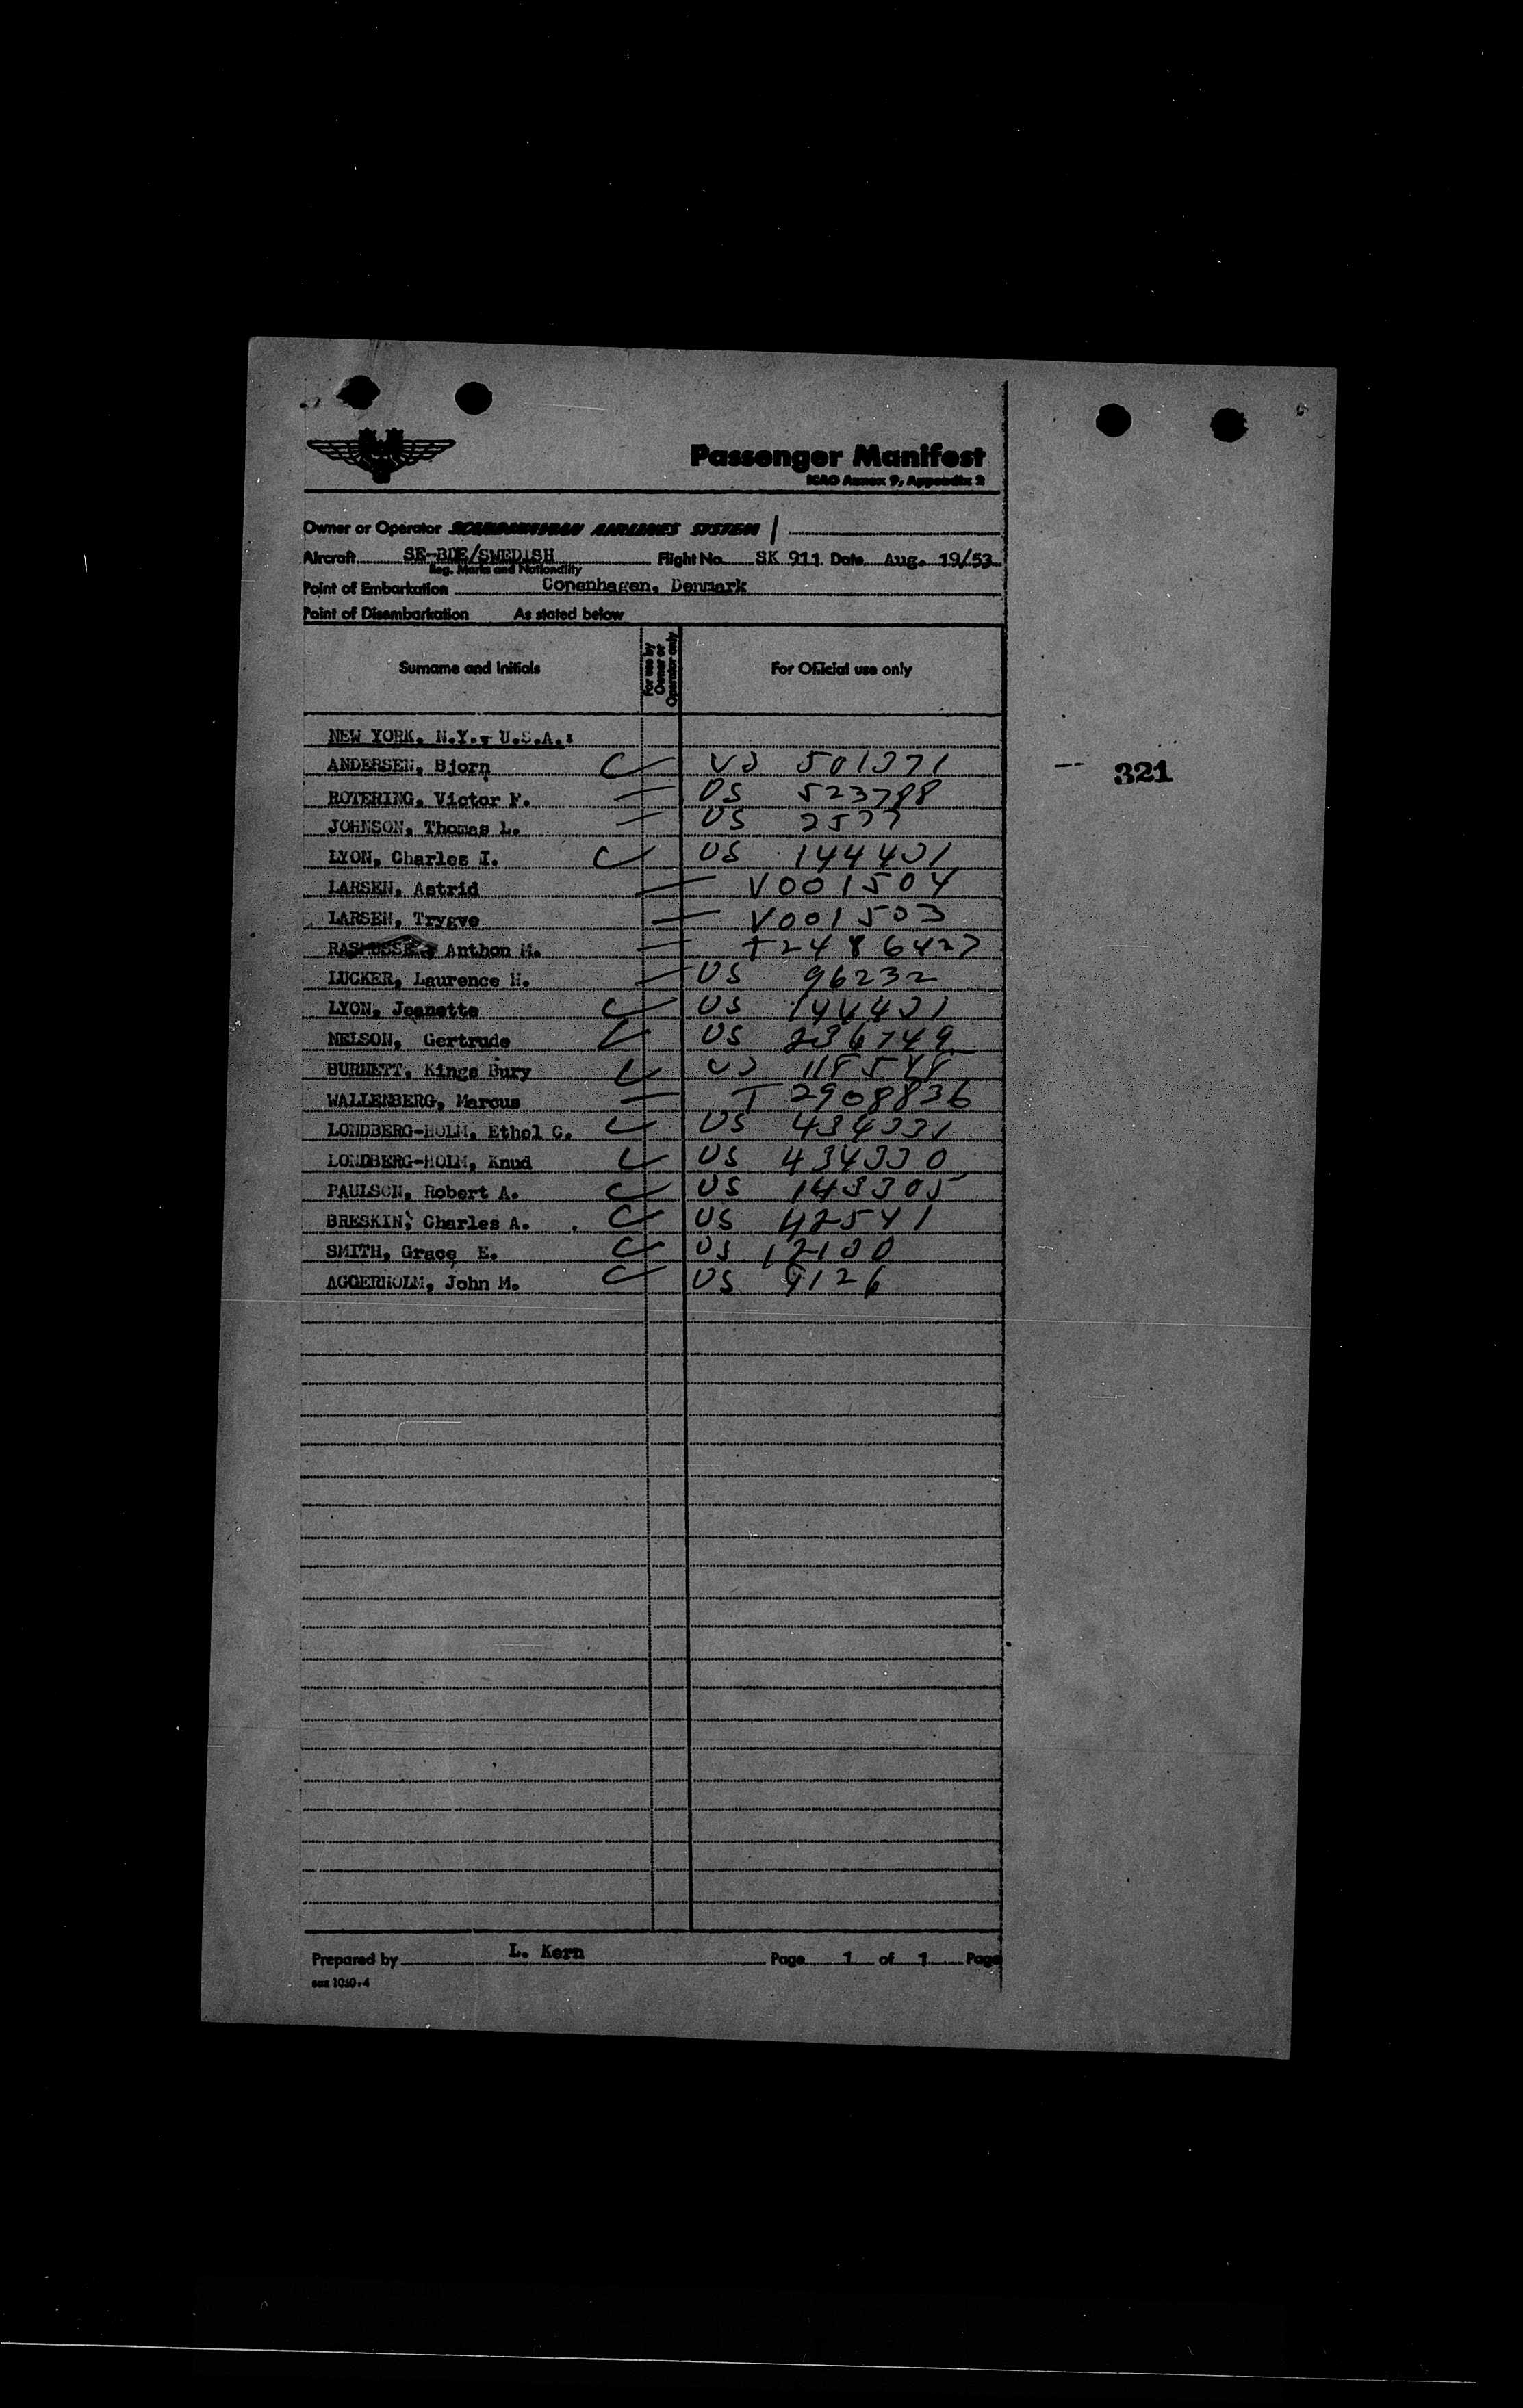 Passenger Manifest
ICAO Annex 9, Appendix 2
Owner or Operator SCANDINAVIAN AIRLINES SYSTEM
Aircraft SE-BDE/SWEDISH Flight No. SK 911 Date Aug. 19/53
Reg. Marks and Nationality
Point of Embarkation Copenhagen, Denmark
Point of Disembarkation As stated below
Surname and Initials For use by Owner or Operator only For Official use only
NEW YORK, N.Y., U.S.A.:
ANDERSEN, Bjorn US 501371
321
ROTERING, Victor F. US 523788
JOHNSON, Thomas L. US 2577
LYON, Charles I. US 144431
LARSEN, Astrid V001504
LARSEN, Trygve V001503
Anthon M. T2486427
LUCKER, Laurence H. US 96232
LYON, Jeanette US 144431
NELSON, Gertrude US 236749
BURNETT, Kings Bury US 118548
WALLENBERG, Marcus T 2908836
LONDBERG-HOLM, Ethel C. US 434331
LONDBERG-HOLM, Knud US 434330
PAULSON, Robert A. US 143305
BRESKIN, Charles A. US 42541
SMITH, Grace E. US 12130
AGGERHOLM, John M. US 9126
Prepared by L. Kern Page 1 of 1 Page